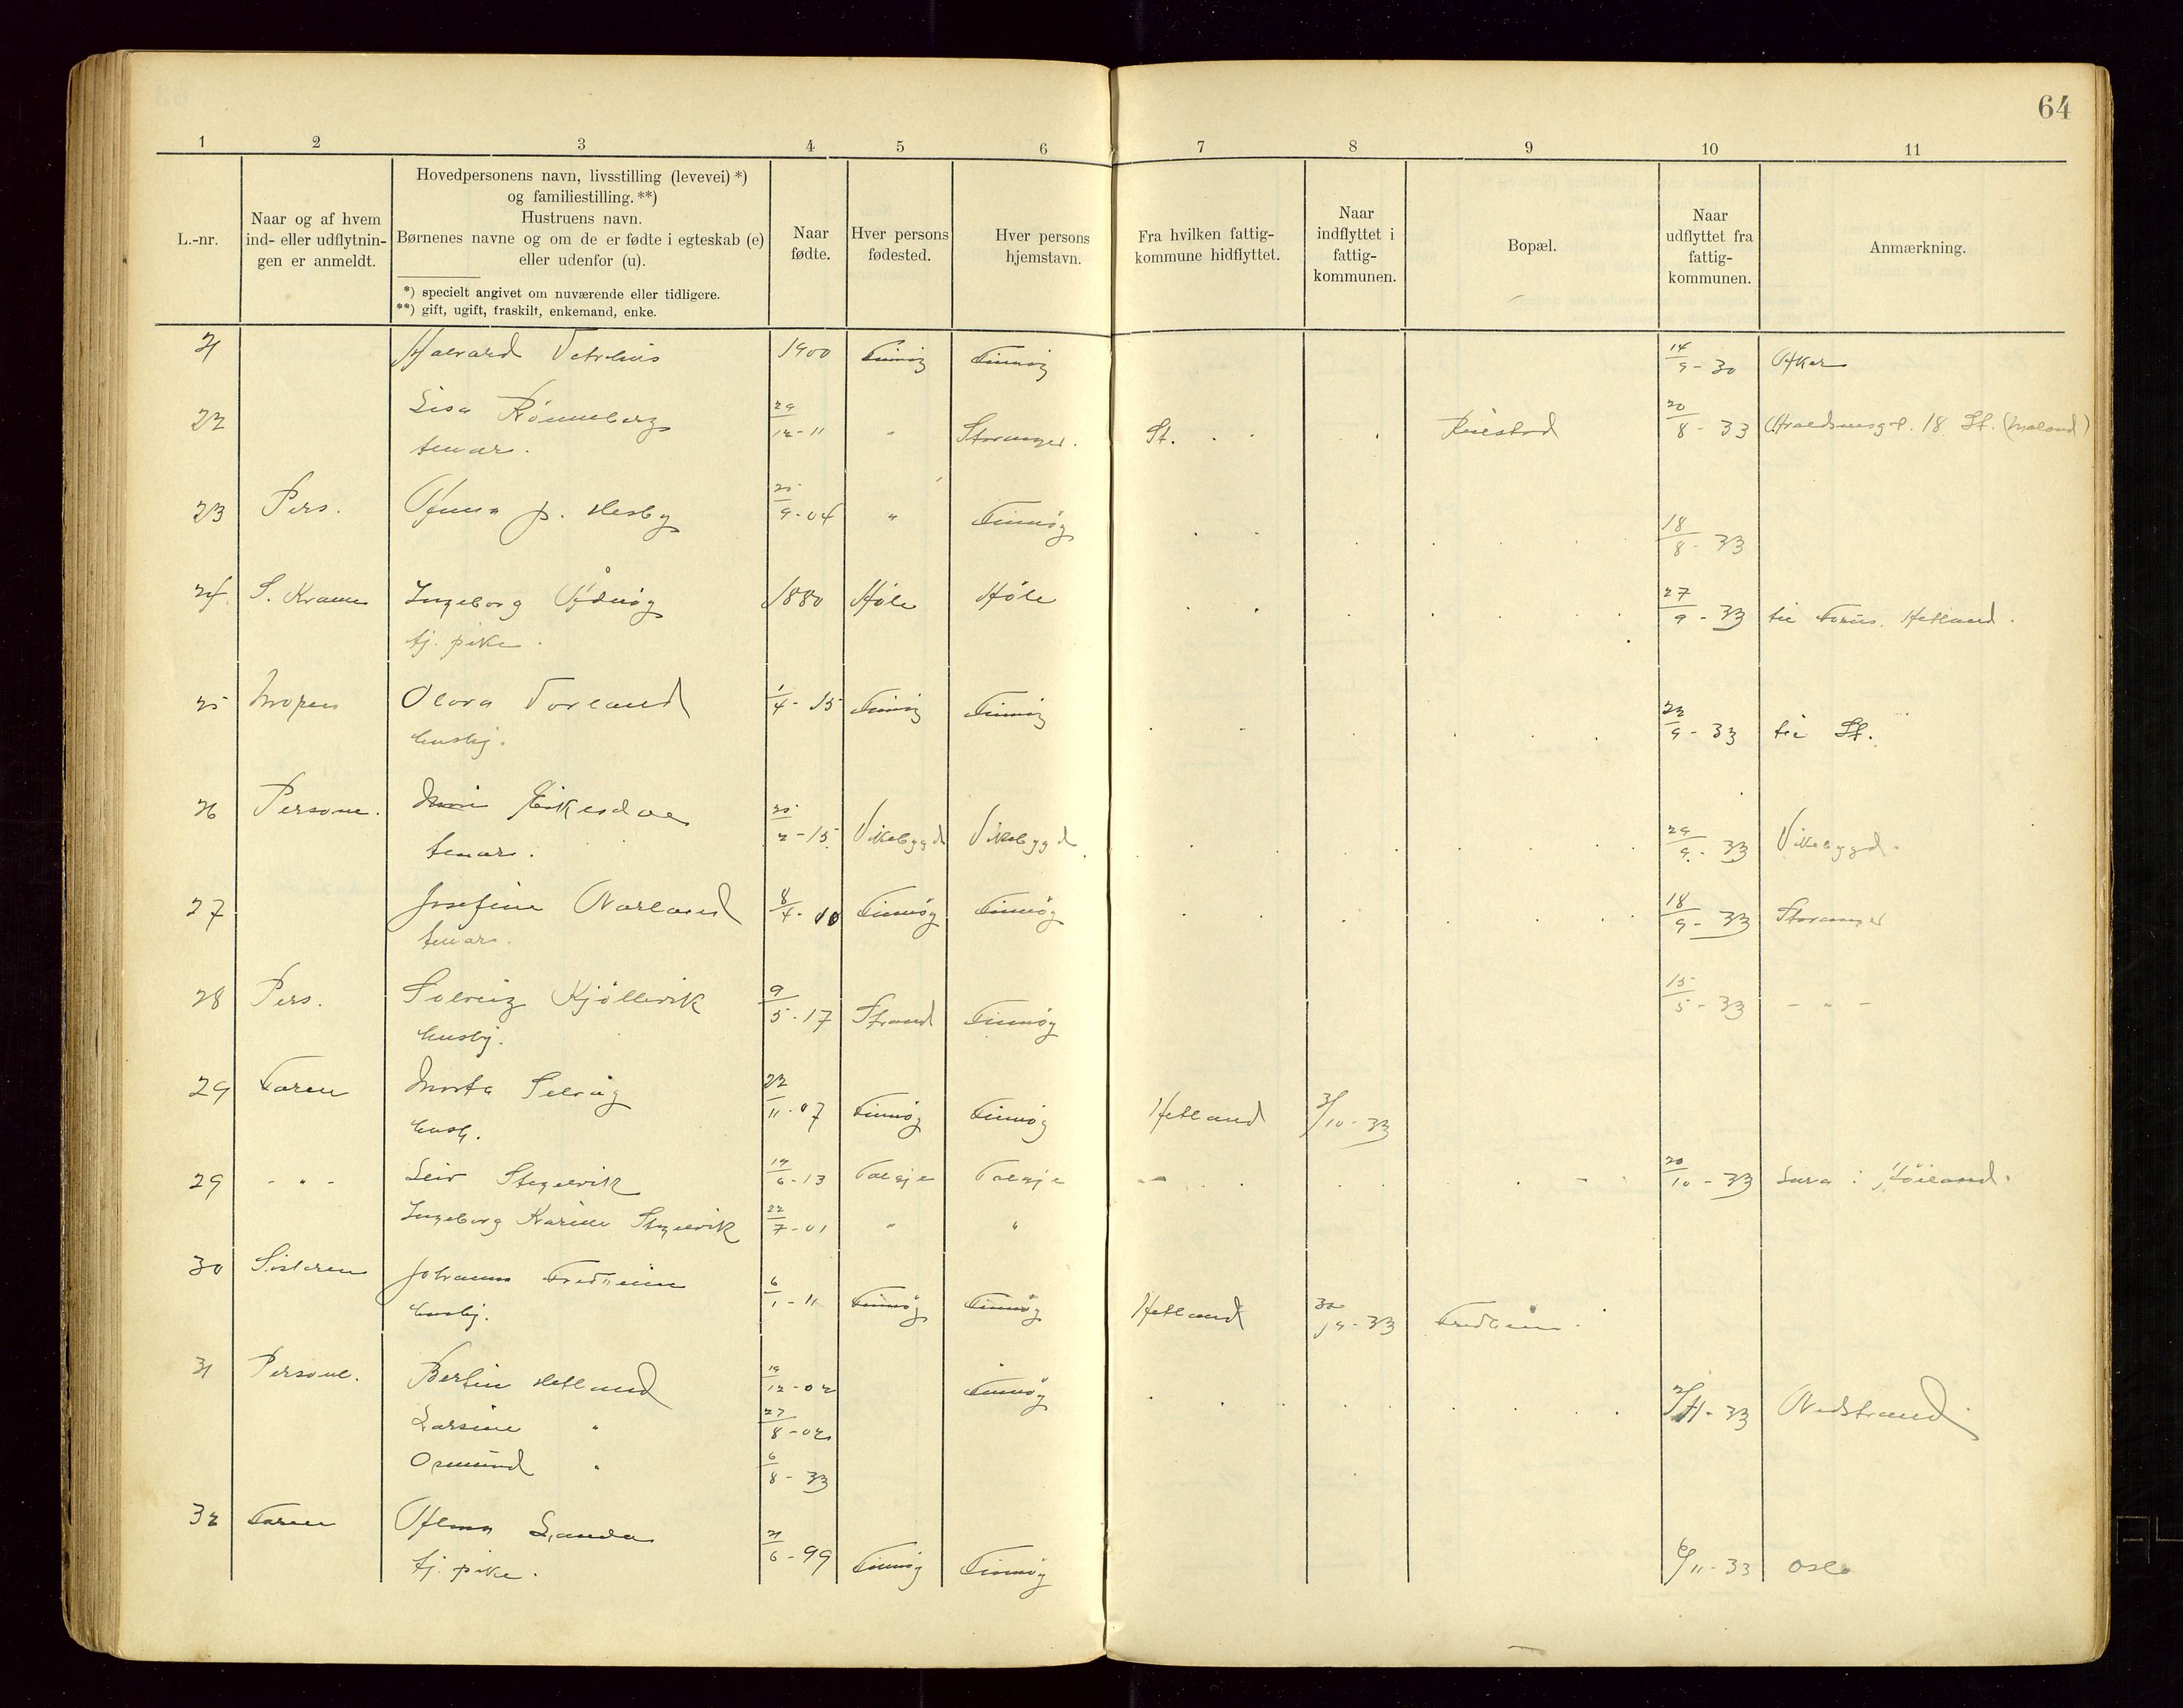 64
1 2 3 4 5 6 7 8 9 10 11
L.-nr.
Naar og af hvem
ind- eller udflytnin-
gen er anmeldt.
Hovedpersonens navn, livsstilling (levevei) *)
og familiestilling. **)
Hustruens navn.
Børnenes navne og om de er fødte i egteskab (e)
eller udenfor (u).
*) specielt angivet om nuværende eller tidligere.
**) gift, ugift, fraskilt, enkemand, enke.
Naar
fødte.
Hver persons
fødested.
Hver persons
hjemstavn.
Fra hvilken fattig-
kommune hidflyttet.
Naar
indflyttet i
fattig-
kommunen.
Bopæl.
Naar
udflyttet fra
fattig-
kommunen.
Anmærkning.
21 Halvard Vetrhus 1900 Finnøy Finnøy 14/9-30 Aker
22 Lisa Rönneberg 29/12-11 " Stavanger. St. 20/8-33 18 St.
tenar.
23 Pers. Anna J. Hesby 25/9-04 " Finnøy 18/8-33
24 Ingeborg Ådnøy 1880 Høle Høle 27/9-33 til Forus. Hetland.
tj. pike.
25 Moren Olava Torland 1/4-15 Finnøy Finnøy 22/9-33 til St.
husbj.
26 Personl. Eikesdal 25/2-15 Vikebygd Vikebygd 29/9-33 Vikebygd.
tenar.
27 Josefine Narland 8/4-10 Finnøy Finnøy 18/9-33 Stavanger
tenar.
28 Pers. Solveig Kjöllevik 9/5-17 Strand Finnøy 15/5-33 - " -
husbj.
29 Faren Marta Selvåg 22/11-07 Finnøy Finnøy Hetland 3/10-33
husb.
29 - " - Leiv Stegelvik 12/6-13 Talgje Talgje - " - 20/10-33 Lura i Höiland.
Ingeborg Karine Stegelvik 22/7-01 " "
30 Sisteren Johanna Fredheim 6/1-11 Finnøy Finnøy Hetland 30/19-33 Fredheim.
husbj.
31 Personl. Bertin Hetland 19/12-02 Finnøy 2/11-33 Nedstrand
Larsine " 27/8-02
Osmund " 6/8-33
32 Faren Alma Landa 21/6-99 Finnøy Finnøy 6/11-33 Oslo
tj. pike.